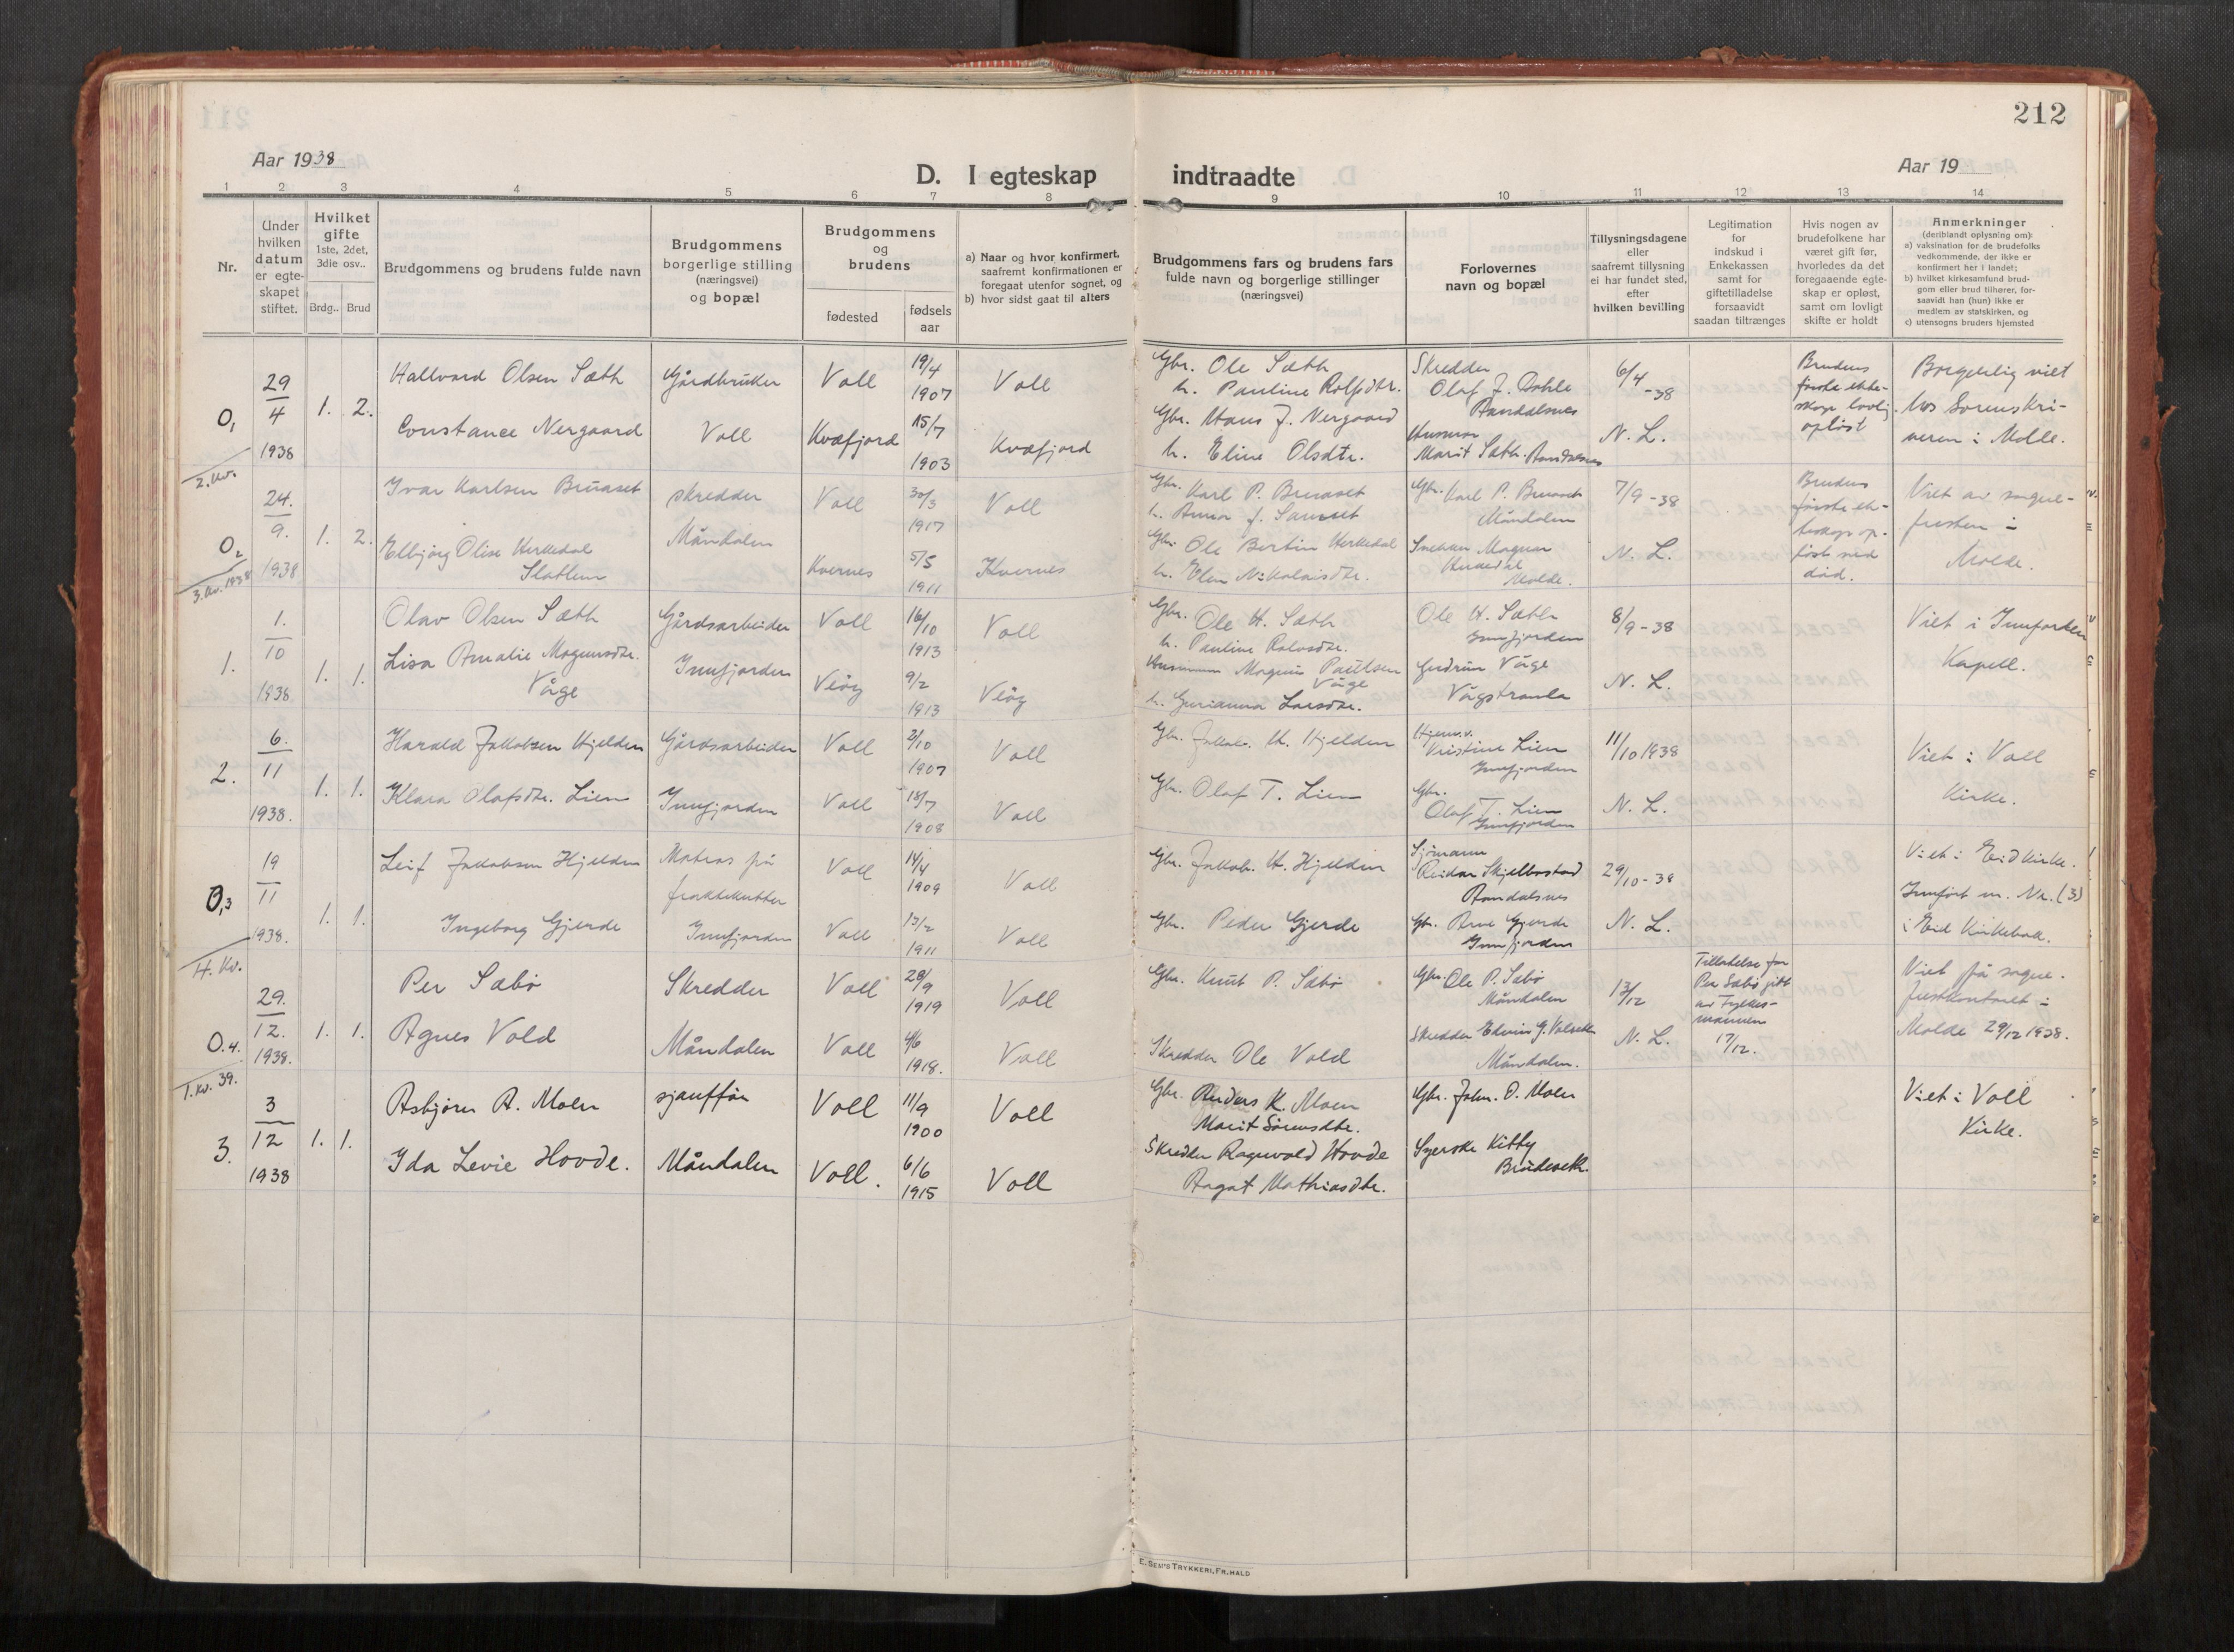 212
Aar 1938
D. I egteskap indtraadte
Aar 19
1 2 3 4 5 6 7 8 9 10 11 12 13 14
Nr.
Under
hvilken
datum
er egte-
skapet
stiftet.
Hvilket
gifte
1ste, 2det,
3die osv..
Brdg.. Brud
Brudgommens og brudens fulde navn
Brudgommens
borgerlige stilling
(næringsvei)
og bopæl
Brudgommens
og
brudens
fødested
fødsels
aar
a) Naar og hvor konfirmert,
saafremt konfirmationen er
foregaat utenfor sognet, og
b) hvor sidst gaat til alters
Brudgommens fars og brudens fars
fulde navn og borgerlige stillinger
(næringsvei)
Forlovernes
navn og bopæl
Tillysningsdagene
eller
saafremt tillysning
ei har fundet sted,
efter
hvilken bevilling
Legitimation
for
indskud i
Enkekassen
samt for
giftetilladelse
forsaavidt
saadan tiltrænges
Hvis nogen av
brudefolkene har
været gift før,
hvorledes da det
foregaaende egte-
skap er opløst,
samt om lovligt
skifte er holdt
Anmerkninger
(deriblandt oplysning om):
a) vaksination for de brudefolks
vedkommende, der ikke er
konfirmert her i landet;
b) hvilket kirkesamfund brud-
gom eller brud tilhører, for-
saavidt han (hun) ikke er
medlem av statskirken, og
c) utensogns bruders hjemsted
0,1
2. kv.
29
4
1938
1. 2.
Hallvard Olsen Sæth
Constance Nergaard
Gårdbruker
Voll
Voll
19/4
1907
Voll
Kvæfjord
15/7
1903
Kvæfjord
Gbr. Ole Sæth
h. Pauline Rolfsdtr.
Gbr. Hans J. Nergaard
h. Eline Olsdtr.
Skredder
Olaf J. Dahle
Åndalsnes
Husmor
Marit Sæth. Åndalsnes
6/4
-38
N. L.
Brudens
første ekte-
skap lovlig
opløst
Borgerlig viet
hos Sorenskri-
veren i Molde.
0,2
3. kv. 1938
24.
9.
1938
1. 2.
Ivar Karlsen Bruaset
Elbjørg Olise Herkedal
skredder
Måndalen
Voll
30/3
1917
Voll
Kvernes
5/5
1911
Kvernes
Gbr. Karl P. Bruaset
h. Anna J.
Gbr. Ole Bertin Herkedal
h. Elen Nikolaisdtr.
Gbr. Karl P. Bruaset
Måndalen
Snekker Magnar
Herkedal
Molde.
7/9 -38
N. L.
Brudens
første ek-
teskap op-
løst ved
død.
Viet av sogne-
presten i
Molde.
1.
1.
10
1938
1. 1.
Olav Olsen Sæth
Lisa Amalie Magnusdtr.
Våge
Gårdsarbeider
Innfjorden
Voll
16/10
1913
Voll
Veøy
9/2
1913
Veøy
Gbr. Ole H. Sæth
h. Pauline Rolvsdtr.
Husmann Magnus Paulsen
Våge
h. Gurianna Larsdtr.
Ole H. Sæth
Innfjorden
Gudrun Våge
Vågstranda
8/9 -38
N. L.
Viet i Innfjorden
Kapell.
2.
6.
11
1938.
1. 1.
Harald Jakobsen Hjelden
Klara Olafsdtr. Lien
Gårdsarbeider
Innfjorden
Voll
2/10
1907
Voll
Voll
18/7
1908
Voll
Gbr. Jakob. H. Hjelden
Gbr. Olaf T. Lien
Hjemv.
Kristine Lien
Innfjorden
Gbr.
Olaf T. Lien
Innfjorden
11/10 1938
N. L.
Viet i Voll
Kirke.
0,3
4. kv.
19
11
1938.
1. 1.
Leif Jakobsen Hjelden
Ingeborg Gjerde
Matros på
fraktekutter
Innfjorden
Voll
14/4
1909
Voll
Voll
13/2
1911
Voll
Gbr. Jakob. H. Hjelden
Gbr. Peder Gjerde
Sjömann
Reidar Skjelbostad
Åndalsnes
Gbr. Arne Gjerde
Innfjorden
29/10 - 38
N. L.
Viet i Eid kirke.
Innført m. Nr. (3)
i Eid Kirkebok.
0.4.
1. kv. 39.
29.
12.
1938.
1. 1.
Per Sæbö
Agnes Vold
Skredder
Måndalen
Voll
29/9
1919
Voll
Voll
4/6
1918.
Voll
Gbr. Knut P. Sæbö
Skredder Ole Vold
Gbr. Ole P. Sæbö
Måndalen
Skredder Edvin J. Volseth
Måndalen.
13/12
N. L.
Tilladelse for
Per Sæbö gitt
av Fylkes-
mannen
17/12.
Viet på sogne-
prestkontoret i
Molde 29/12 1938.
3.
3
12
1938
1. 1.
Asbjörn A. Moen
Ida Levie Hovde.
sjauffør
Måndalen
Voll
11/9
1900
Voll
Voll.
6/6
1915
Voll
Gbr. Anders K. Moen
Marit Sörensdtr.
Skredder Ragnvald Hovde
Aagot Mathiasdtr.
Gbr. John. O. Moen
Syerske Kitty
Brudeseth.
Viet i Voll
Kirke.
E. SEM'S TRYKKERI, FR.HALD